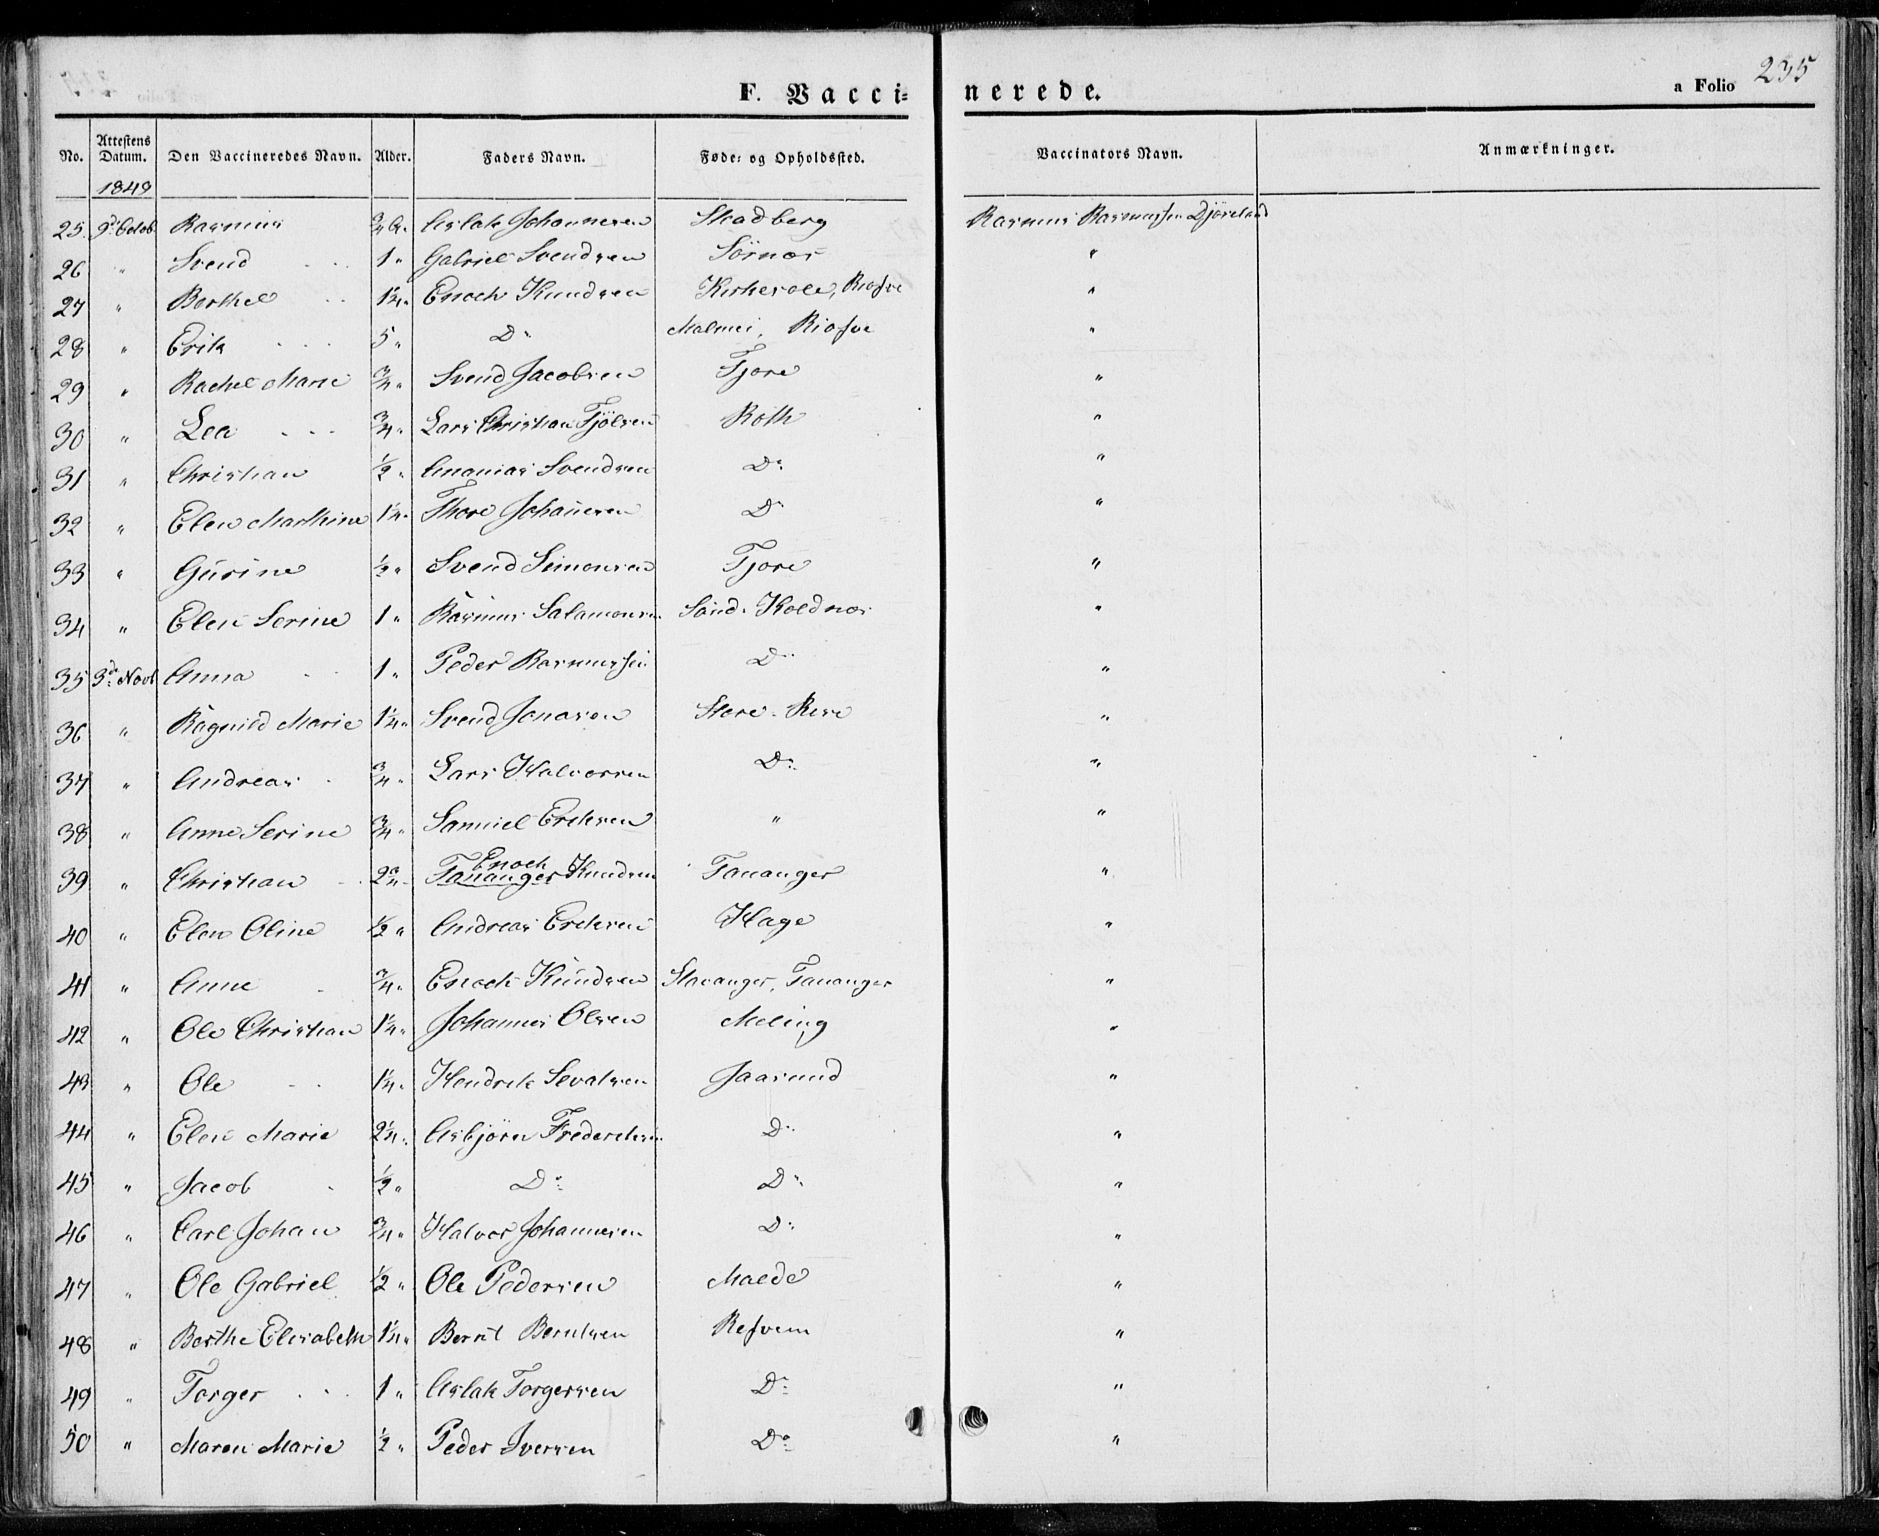 235
F. Vacci= nerede. a Folio
No. Attestens Datum. Den Vaccineredes Navn. Alder. Faders Navn. Føde= og Opholdssted. Vaccinators Navn. Anmærkninger.
1849
25 Octob. Rasmus 3/4 Aslak Johannesen Skadberg Rasmus Rasmussen
26 " Svend 1 " Gabriel Svendsen Sörnes "
27 " Berthel 1 1/4 " Enoch Knudsen "
28 " Erik 5 " D: "
29 " Rachel Marie 3/4 " Svend Jacobsen Tjore "
30 " Lea 3/4 " Lars Christian Tjölsen Roth "
31 " Christian 1/2 " Ananias Svendsen D: "
32 " Elen Marthine 1 1/4 " Thore Johansen D: "
33 " Gurine 1/2 " Svend Simonsen Tjore "
34 " Elen Serine 1 " Rasmus Salamonsen Sönd: Koldnes "
35 3d: Novb Anna 1 " Peder Rasmussen D: "
36 " Ragnild Marie 1 1/4 " Svend Jonasen Store-Rese "
37 " Andreas 3/4 " Lars Halvorsen D: "
38 " Anne Serine 3/4 " Samuel Ericksen " "
39 " Christian 2 3/4 " Enoch Tananger Knudsen Tananger "
40 " Elen Oline 1/2 " Andreas Ericksen Hage "
41 " Anne 3/4 " Enoch Knudsen Stavanger, Tananger "
42 " Ole Christian 1 1/4 " Johannes Olsen Meling "
43 " Ole 1 1/4 " Hendrik Sevatsen Jaasund "
44 " Elen Marie 2 1/4 " Asbjörn Fredericksen D: "
45 " Jacob 1/2 " D: D: "
46 " Carl Johan 3/4 " Halvor Johannesen D: "
47 " Ole Gabriel 1/2 " Ole Pedersen Melde "
48 " Berthe Elisabeth 1 1/4 " Bernt Berntsen Refsvem "
49 " Torger 1 " Aslak Torgersen D: "
50 " Maren Marie 1/2 " Peder Iversen D: "